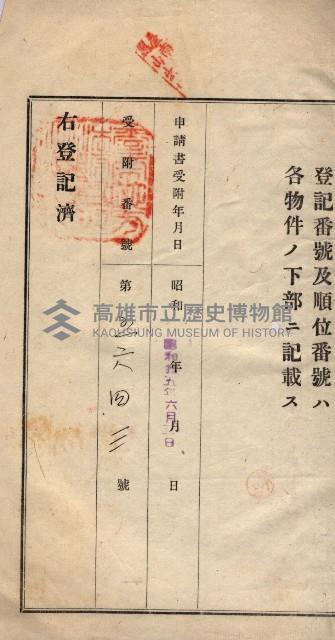 登記番號及順位番號ハ
各物件ノ下部ニ記載ス
申請書受附年月日 昭和 年 月 日
昭和拾五年六月 日
受附番號 第 六四三 號
右登記濟
高雄市立歷史博物館
KAOHSIUNG MUSEUM OF HISTORY